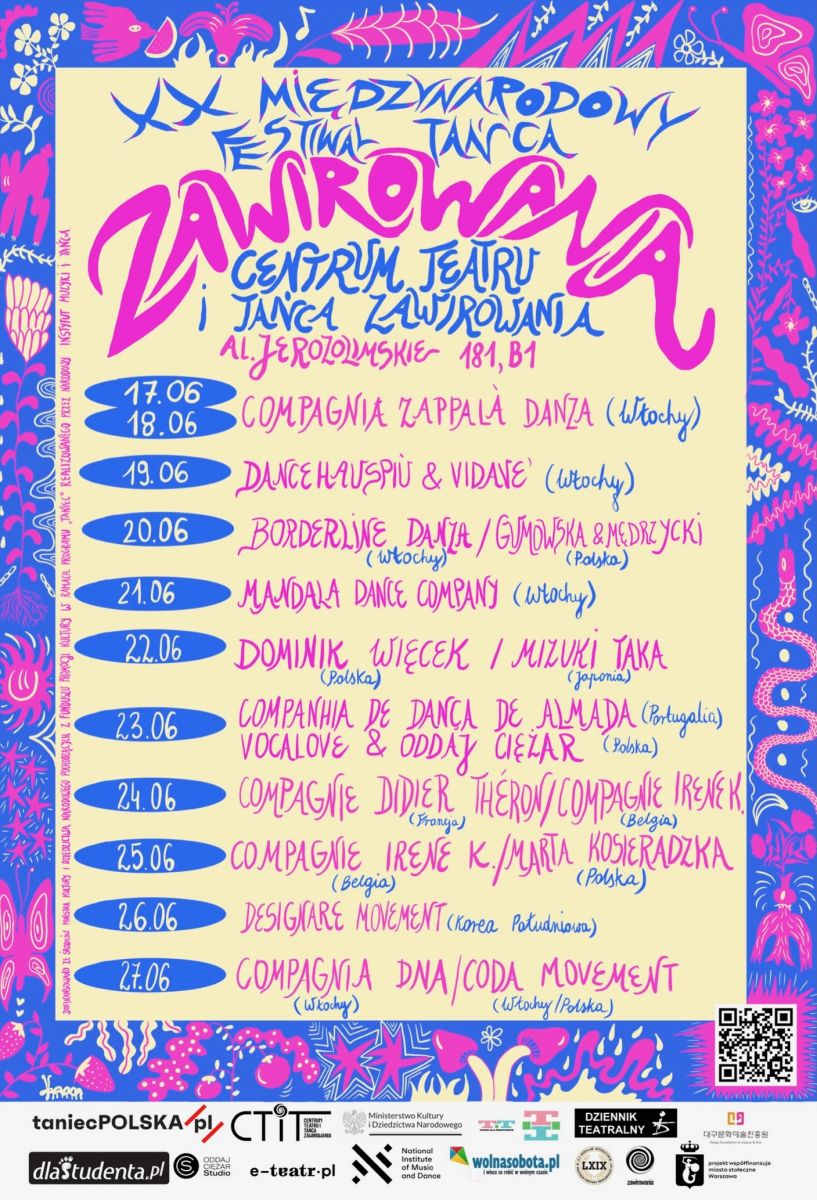 XX MIĘDZYNARODOWY
FESTIWAL TAŃCA
ZAWIROWANIA
CENTRUM TEATRU
i TAŃCA ZAWIROWANIA
Al. JEROZOLIMSKIE 181, B1
17.06
18.06 COMPAGNIA ZAPPALÀ DANZA (Włochy)
19.06 DANCEHAUSPIÙ & VIDAVÈ (Włochy)
20.06 BORDERLINE DANZA / GUMOWSKA & MĘDRZYCKI
(Włochy) (Polska)
21.06 MANDALA DANCE COMPANY (Włochy)
22.06 DOMINIK WIĘCEK / MIZUKI TAKA
(Polska) (Japonia)
23.06 COMPANHIA DE DANÇA DE ALMADA (Portugalia)
VOCALOVE & ODDAJ CIĘŻAR (Polska)
24.06 COMPAGNIE DIDIER THÉRON/COMPAGNIE IRENE K.
(Francja) (Belgia)
25.06 COMPAGNIE IRENE K./MARTA KOSIERADZKA
(Belgia) (Polska)
26.06 DESIGNARE MOVEMENT (Korea Południowa)
27.06 COMPAGNIA DNA/CODA MOVEMENT
(Włochy) (Włochy/Polska)
DOFINANSOWANO ZE ŚRODKÓW MINISTRA KULTURY I DZIEDZICTWA NARODOWEGO POCHODZĄCYCH Z FUNDUSZU PROMOCJI KULTURY W RAMACH PROGRAMU „TANIEC” REALIZOWANEGO PRZEZ NARODOWY INSTYTUT MUZYKI I TAŃCA
taniecPOLSKA/pl
CTiT CENTRUM
TEATRU I
TAŃCA
ZAWIROWANIA
Ministerstwo Kultury
i Dziedzictwa Narodowego
DZIENNIK
TEATRALNY
대구문화예술진흥원
dlaStudenta.pl
ODDAJ
CIĘŻAR
Studio
e-teatr.pl
National
Institute
of Music
and Dance
wolnasobota.pl
i wiesz co robić w wolnym czasie
LXIX
zawirowania
projekt współfinansuje
miasto stołeczne
Warszawa